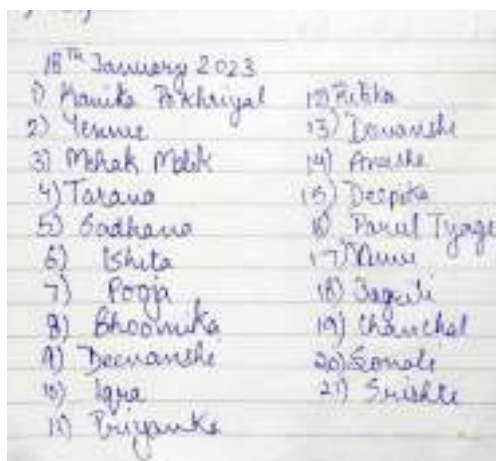 18Th January 2023
1) Kanika Pokhriyal
2) Yennie
3) Mehak Malik
4) Tarana
5) Sadhana
6) Ishita
7) Pooja
8) Bhoomika
9) Deevanshi
10) Iqra
11) Priyanka
12) Ritika
13) Devanshi
14) Anushka
15) Deepika
16) Parul Tyagi
17)
18) Jagriti
19) Chanchal
20) Sonali
21) Srishti